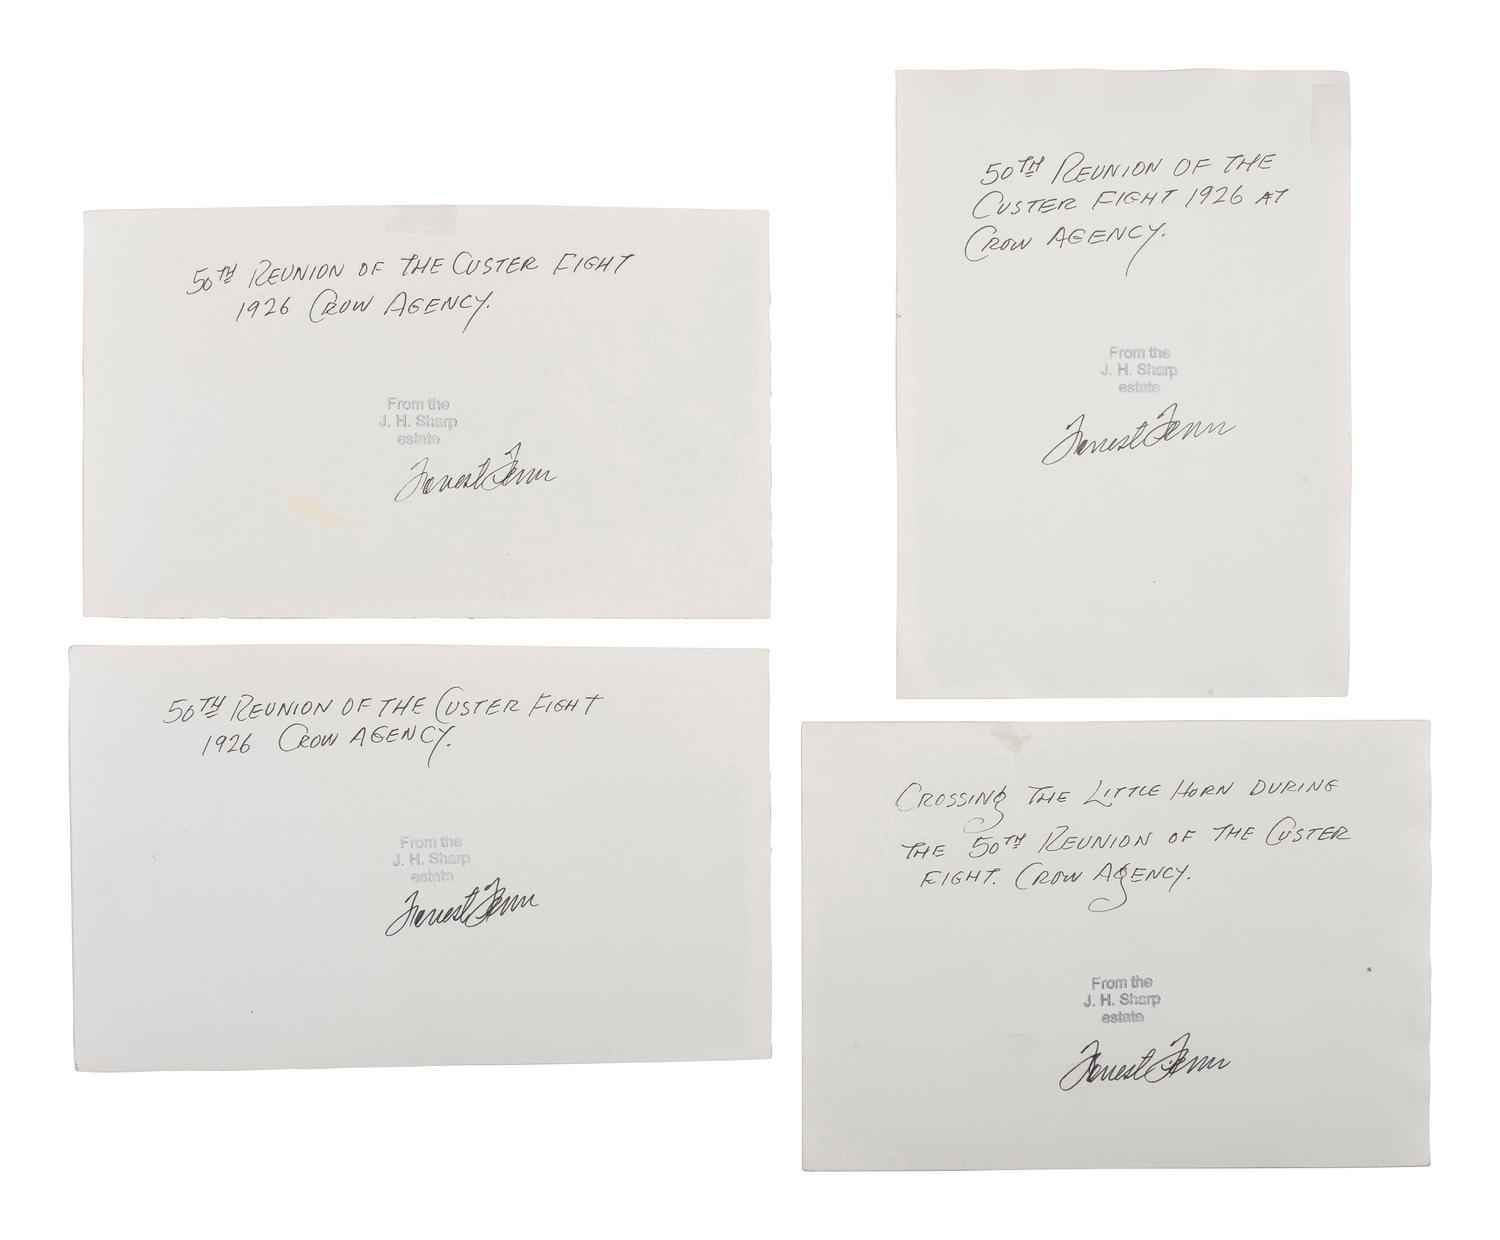 50TH REUNION OF THE CUSTER FIGHT
1926 CROW AGENCY.
From the
J. H. Sharp
estate
Forrest Fenn
50TH REUNION OF THE
CUSTER FIGHT 1926 AT
CROW AGENCY.
From the
J. H. Sharp
estate
Forrest Fenn
50TH REUNION OF THE CUSTER FIGHT
1926 CROW AGENCY.
From the
J. H. Sharp
estate
Forrest Fenn
CROSSING THE LITTLE HORN DURING
THE 50TH REUNION OF THE CUSTER
FIGHT. CROW AGENCY.
From the
J. H. Sharp
estate
Forrest Fenn